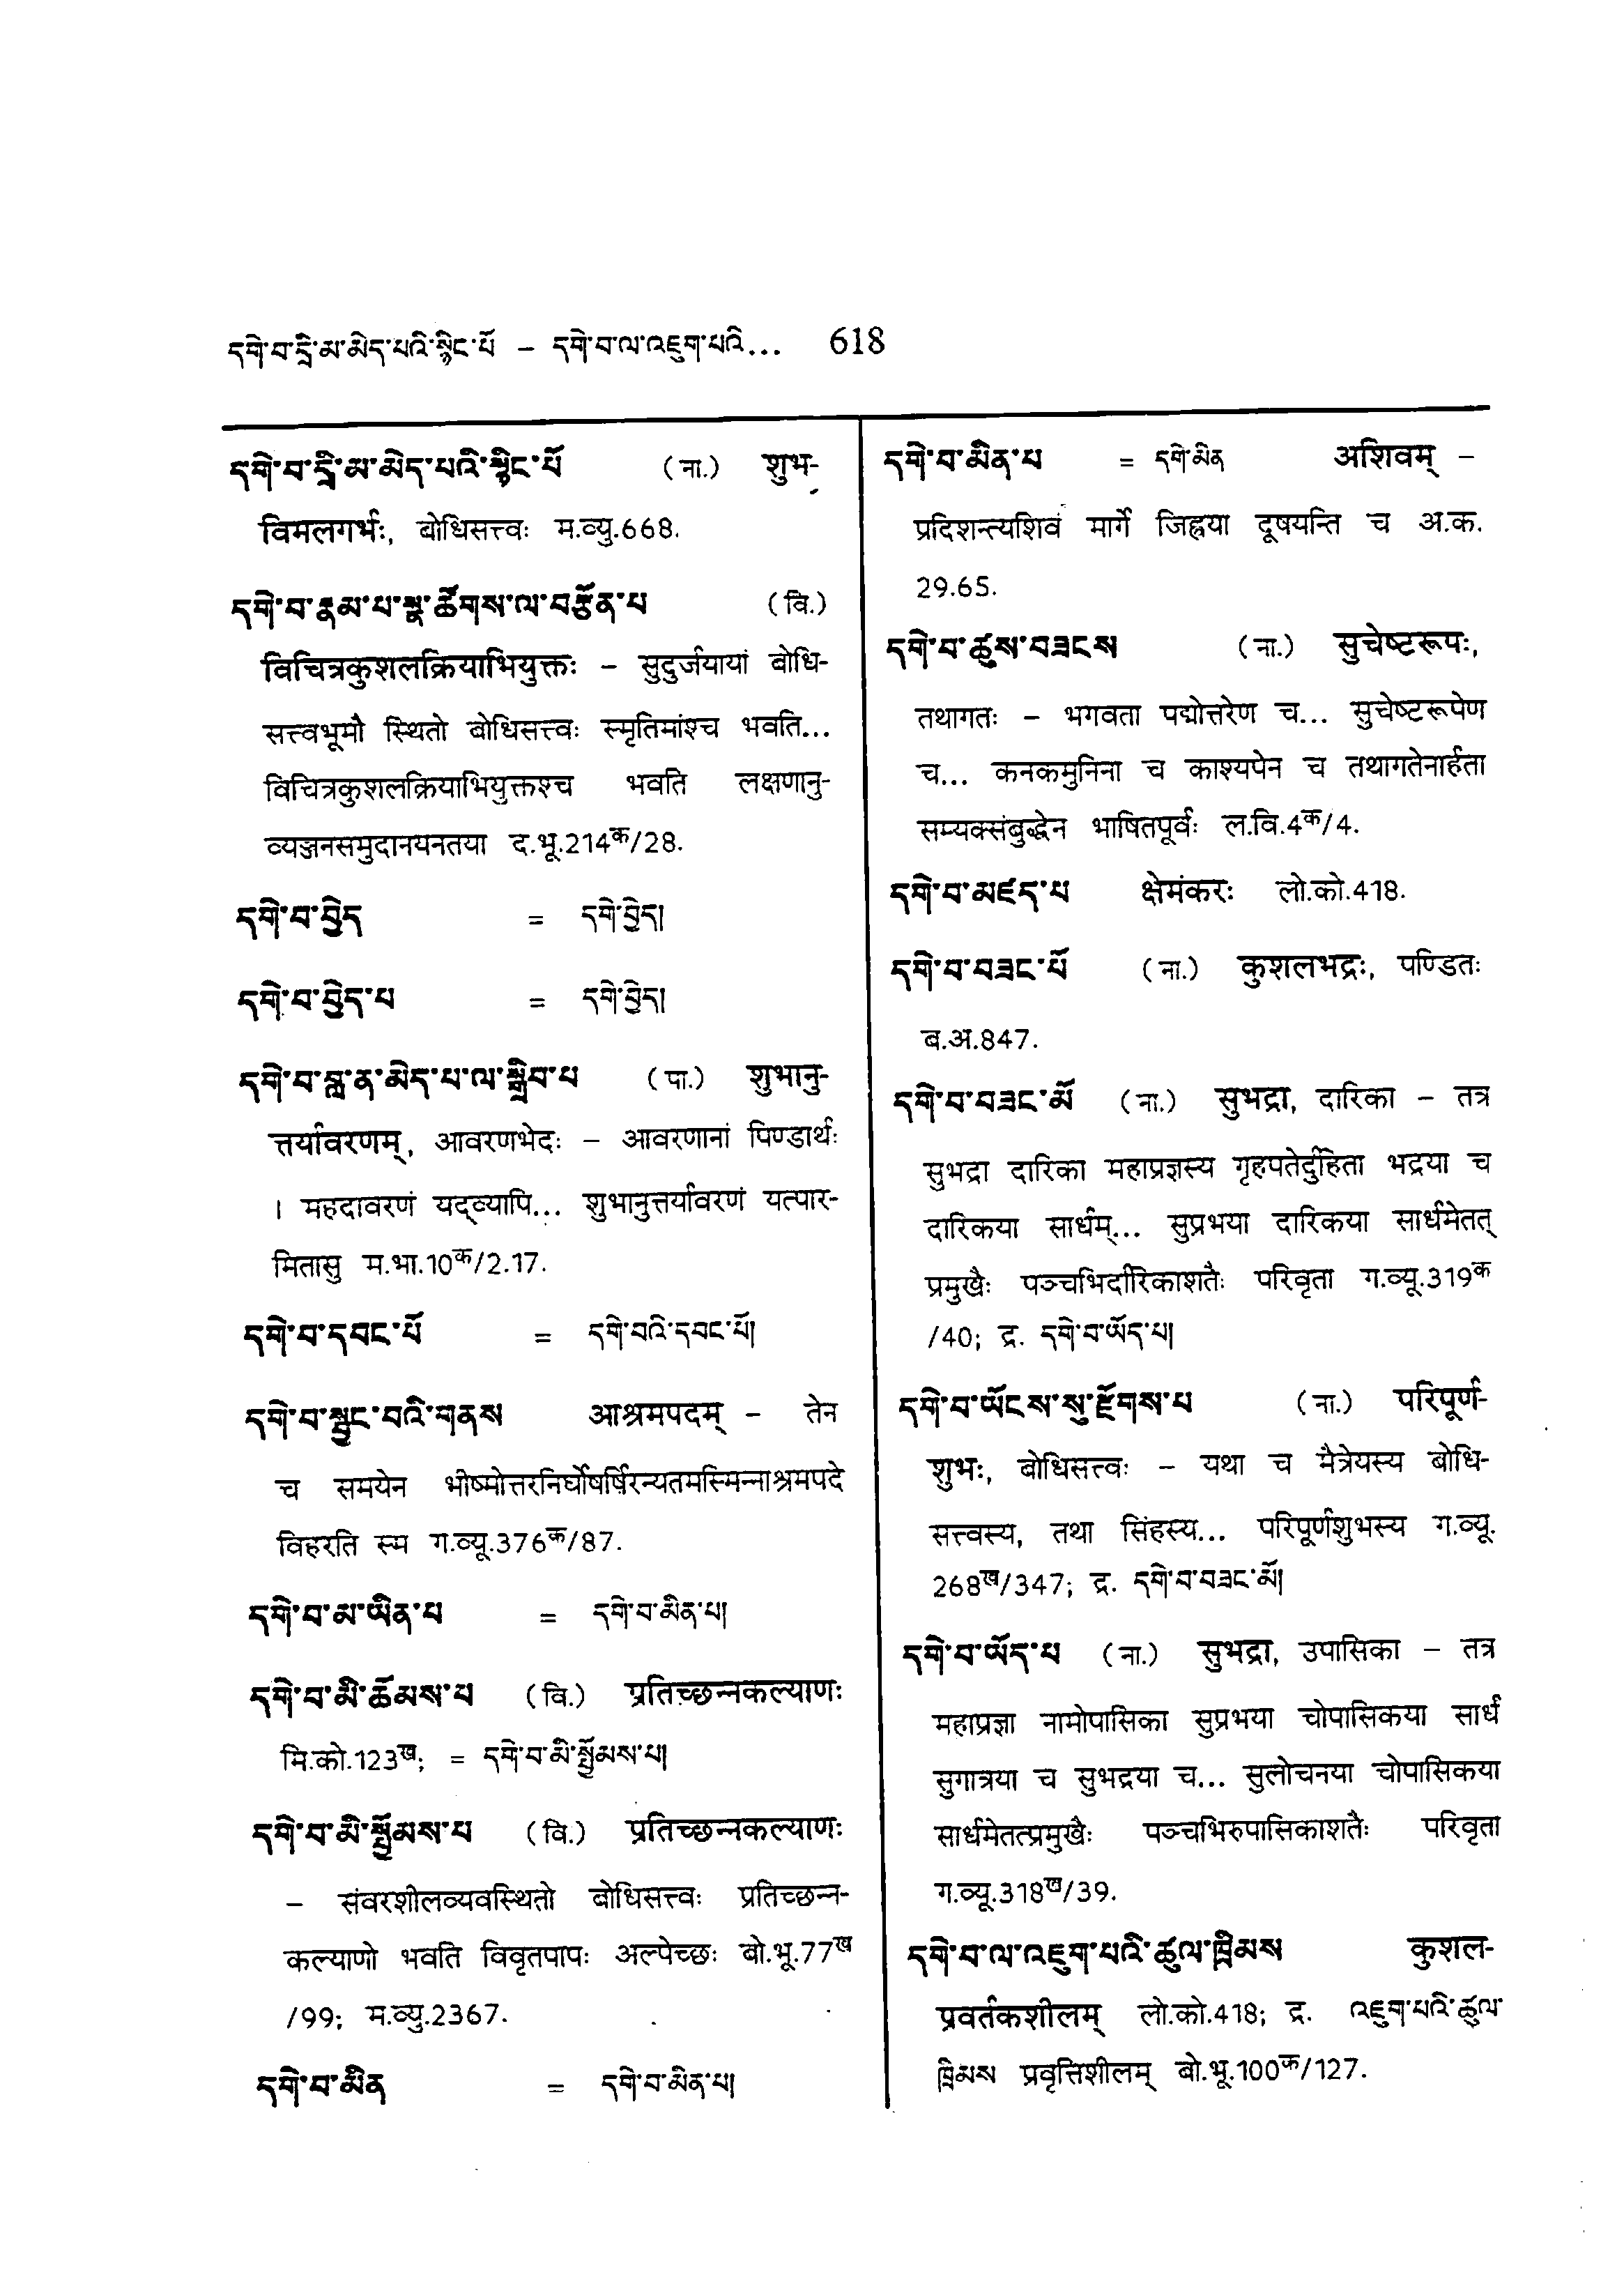 དགེ་བ་དྲི་མ་མེད་པའི་སྙིང་པོ – དགེ་བ་ལ་འཇུག་པའི... 618
དགེ་བ་དྲི་མ་མེད་པའི་སྙིང་པོ (ना.) शुभ-
विमलगर्भः, बोधिसत्त्वः म.व्यु.668.
དགེ་བ་རྣམ་པ་སྣ་ཚོགས་ལ་བརྩོན་པ (वि.)
विचित्रकुशलक्रियाभियुक्तः – सुदुर्जयायां बोधि-
सत्त्वभूमौ स्थितो बोधिसत्त्वः स्मृतिमांश्च भवति...
विचित्रकुशलक्रियाभियुक्तश्च भवति लक्षणानु-
व्यञ्जनसमुदानयनतया द.भू.214क/28.
དགེ་བ་བྱེད = དགེ་བྱེད།
དགེ་བ་བྱེད་པ = དགེ་བྱེད།
དགེ་བ་བླ་ན་མེད་པ་ལ་སྒྲིབ་པ (पा.) शुभानु-
त्तर्यावरणम्, आवरणभेदः – आवरणानां पिण्डार्थः
। महदावरणं यद्व्यापि... शुभानुत्तर्यावरणं यत्पार-
मितासु म.भा.10क/2.17.
དགེ་བ་དབང་པོ = དགེ་བའི་དབང་པོ།
དགེ་བ་སྦྱང་བའི་གནས आश्रमपदम् – तेन
च समयेन भीष्मोत्तरनिर्घोषर्षिरन्यतमस्मिन्नाश्रमपदे
विहरति स्म ग.व्यू.376क/87.
དགེ་བ་མ་ཡིན་པ = དགེ་བ་མིན་པ།
དགེ་བ་མི་ཆོམས་པ (वि.) प्रतिच्छन्नकल्याणः
मि.को.123ख; = དགེ་བ་མི་སྤྱོམས་པ།
དགེ་བ་མི་སྤྱོམས་པ (वि.) प्रतिच्छन्नकल्याणः
– संवरशीलव्यवस्थितो बोधिसत्त्वः प्रतिच्छन्न-
कल्याणो भवति विवृतपापः अल्पेच्छः बो.भू.77ख
/99; म.व्यु.2367.
དགེ་བ་མིན = དགེ་བ་མིན་པ།
དགེ་བ་མིན་པ = དགེ་མིན अशिवम् –
प्रदिशन्त्यशिवं मार्गे जिह्वया दूषयन्ति च अ.क.
29.65.
དགེ་བ་ཚུས་བཟངས (ना.) सुचेष्टरूपः,
तथागतः – भगवता पद्मोत्तरेण च... सुचेष्टरूपेण
च... कनकमुनिना च काश्यपेन च तथागतेनार्हता
सम्यक्संबुद्धेन भाषितपूर्वः ल.वि.4क/4.
དགེ་བ་མཛད་པ क्षेमंकरः लो.को.418.
དགེ་བ་བཟང་པོ (ना.) कुशलभद्रः, पण्डितः
ब.अ.847.
དགེ་བ་བཟང་མོ (ना.) सुभद्रा, दारिका – तत्र
सुभद्रा दारिका महाप्रज्ञस्य गृहपतेर्दुहिता भद्रया च
दारिकया सार्धम्... सुप्रभया दारिकया सार्धमेतत्
प्रमुखैः पञ्चभिर्दारिकाशतैः परिवृता ग.व्यू.319क
/40; द्र. དགེ་བ་ཡོད་པ།
དགེ་བ་ཡོངས་སུ་རྫོགས་པ (ना.) परिपूर्ण-
शुभः, बोधिसत्त्वः – यथा च मैत्रेयस्य बोधि-
सत्त्वस्य, तथा सिंहस्य... परिपूर्णशुभस्य ग.व्यू.
268ख/347; द्र. དགེ་བ་བཟང་མོ།
དགེ་བ་ཡོད་པ (ना.) सुभद्रा, उपासिका – तत्र
महाप्रज्ञा नामोपासिका सुप्रभया चोपासिकया सार्धं
सुगात्रया च सुभद्रया च... सुलोचनया चोपासिकया
सार्धमेतत्प्रमुखैः पञ्चभिरुपासिकाशतैः परिवृता
ग.व्यू.318ख/39.
དགེ་བ་ལ་འཇུག་པའི་ཚུལ་ཁྲིམས कुशल-
प्रवर्तकशीलम् लो.को.418; द्र. འཇུག་པའི་ཚུལ་
ཁྲིམས प्रवृत्तिशीलम् बो.भू.100क/127.